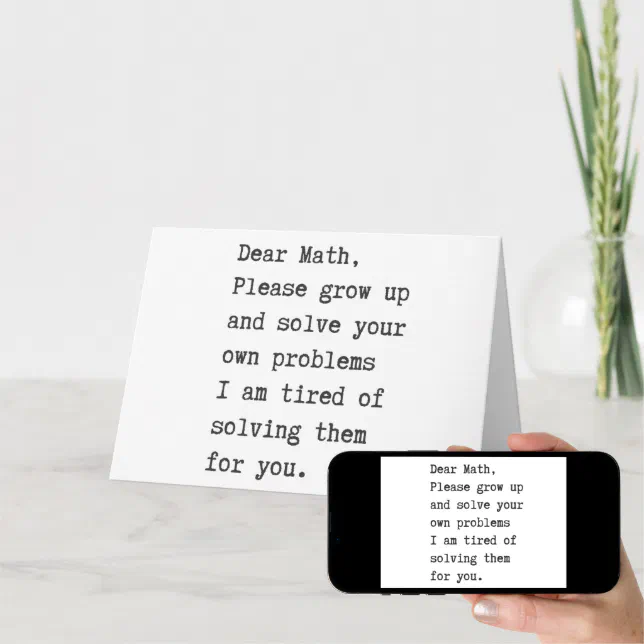 Dear Math,
Please grow up
and solve your
own problems
I am tired of
solving them
for you.
Dear Math,
Please grow up
and solve your
own problems
I am tired of
solving them
for you.